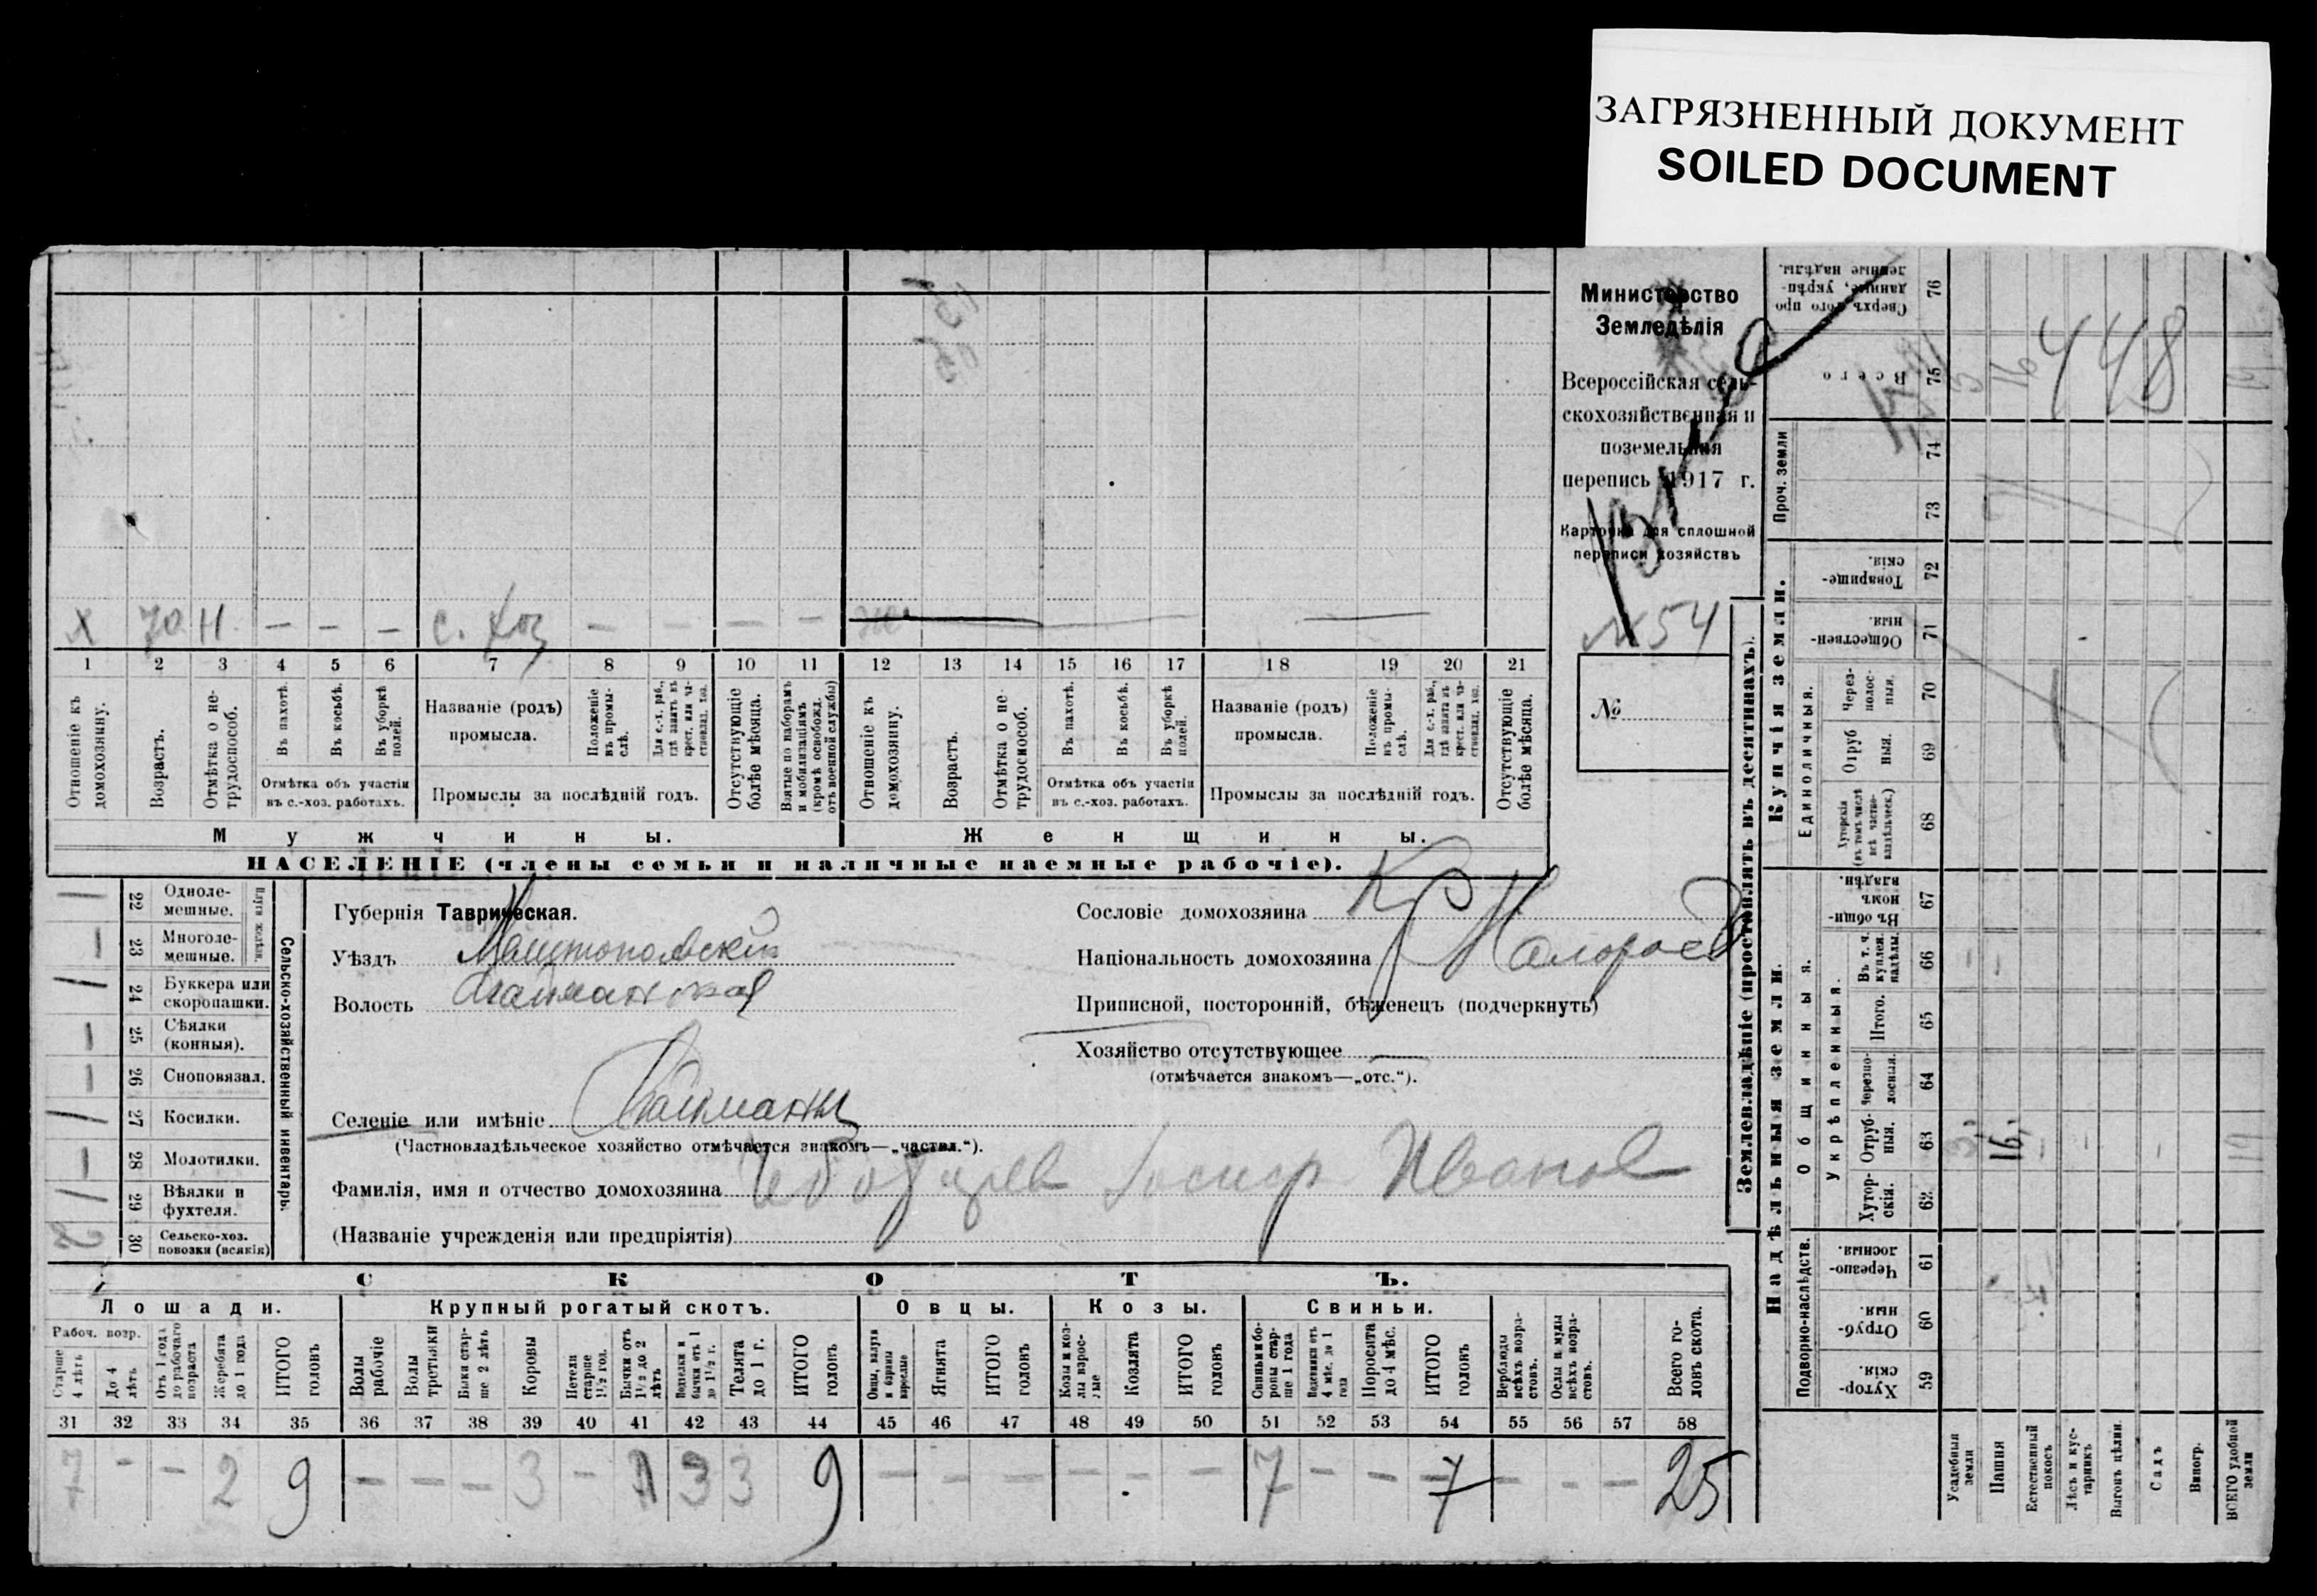 ЗАГРЯЗНЕННЫЙ ДОКУМЕНТ
SOILED DOCUMENT
Министерство
Земледѣлія
Всероссійская сель-
скохозяйственная и
поземельная
перепись 1917 г.
Карточка для сплошной
переписи хозяйствъ
№ 54
№
х 70 н – – – с. хоз – – – –
1 2 3 4 5 6 7 8 9 10 11 12 13 14 15 16 17 18 19 20 21
Отношеніе къ домохозяину.
Возрастъ.
Отмѣтка о не-трудоспособ.
Въ пахотѣ.
Въ косьбѣ.
Въ уборкѣ полей.
Отмѣтка объ участіи въ с.-хоз. работахъ.
Названіе (родъ) промысла.
Положеніе въ промы-слѣ.
Для с.-х. раб., гдѣ занятъ въ крест. или ча-стновлад. хоз.
Промыслы за послѣдній годъ.
Отсутствующіе болѣе мѣсяца.
Взятые по наборамъ и мобилизаціямъ (кромѣ освобожд. отъ военной службы)
Отношеніе къ домохозяину.
Возрастъ.
Отмѣтка о не-трудоспособ.
Въ пахотѣ.
Въ косьбѣ.
Въ уборкѣ полей.
Отмѣтка объ участіи въ с.-хоз. работахъ.
Названіе (родъ) промысла.
Положеніе въ промы-слѣ.
Для с.-х. раб., гдѣ занята въ крест. или ча-стновлад. хоз.
Промыслы за послѣдній годъ.
Отсутствующіе болѣе мѣсяца.
Мужчины.
Женщины.
НАСЕЛЕНІЕ (члены семьи и наличные наемные рабочіе).
Сельско-хозяйственный инвентарь.
Плуги желѣзн.
1 22 Одноле-мешные.
– 23 Многоле-мешные.
1 24 Буккера или скоропашки.
– 25 Сѣялки (конныя).
– 26 Сноповязал.
1 27 Косилки.
– 28 Молотилки.
1 29 Вѣялки и фухтеля.
2 30 Сельско-хоз. повозки (всякія)
Губернія Таврическая.
Уѣздъ Мелитопольскій
Волость
Селеніе или имѣніе
(Частновладѣльческое хозяйство отмѣчается знакомъ—„частвл.“).
Фамилія, имя и отчество домохозяина Чеботарев Іосиф Иванов
(Названіе учрежденія или предпріятія)
Сословіе домохозяина Кр
Національность домохозяина Малоросъ
Приписной, посторонній, бѣженецъ (подчеркнуть)
Хозяйство отсутствующее —
(отмѣчается знакомъ—„отс.“).
СКОТЪ.
Лошади. Крупный рогатый скотъ. Овцы. Козы. Свиньи.
Рабоч. возр.
Старше 4 лѣтъ
До 4 лѣтъ
Отъ 1 года до рабочаго возраста
Жеребята до 1 года
ИТОГО головъ
Волы рабочіе
Волы третьяки
Быки стар-ше 2 лѣтъ
Коровы
Нетели старше 1½ год.
Бычки отъ 1½ до 2 лѣтъ
Телки и бычки отъ 1 до 1½ г.
Телята до 1 г.
ИТОГО головъ
Овцы, валухи и бараны взрослые
Ягнята
ИТОГО головъ
Козы и коз-лы взрос-лые
Козлята
ИТОГО головъ
Свиньи и бо-ровы стар-ше 1 года
Подсвинки отъ 4 мѣс. до 1 года
Поросята до 4 мѣс.
ИТОГО головъ
Верблюды всѣхъ возра-стовъ.
Ослы и мулы всѣхъ возра-стовъ.
Всего го-ловъ скота.
31 32 33 34 35 36 37 38 39 40 41 42 43 44 45 46 47 48 49 50 51 52 53 54 55 56 57 58
7 – – 2 9 – – – 3 – 3 3 9 – – – – – – 7 – – 7 – – – 25
Землевладѣніе (проставлять въ десятинахъ).
Надѣльныя земли.
Купчія земли.
Проч. земли
Подворно-наслѣдств.
Общинныя.
Укрѣпленныя.
Единоличныя.
Сверхъ того про данные, укрѣп-ленные надѣлы. 76
Всего 75
74
73
Товарище-скія. 72
Обществен-ныя. 71
Через-полос-ныя. 70
Отруб ныя. 69
Хуторскія (въ томъ числѣ всѣ частно-владѣльческ.) 68
Въ общин-номъ владѣн. 67
Въ т. ч. куплен. надѣлы. 66
Итого. 65
Черезпо-лосныя. 64
Отруб-ныя. 63
Хутор-скія. 62
Черезпо-лосныя. 61
Отруб-ныя. 60
Хутор-скія. 59
448
16
Усадебныя земли
Пашня
Естественный покосъ
Лѣсъ и кус-тарникъ
Выгонъ цѣлин.
Садъ
Виногр.
ВСЕГО удобной земли